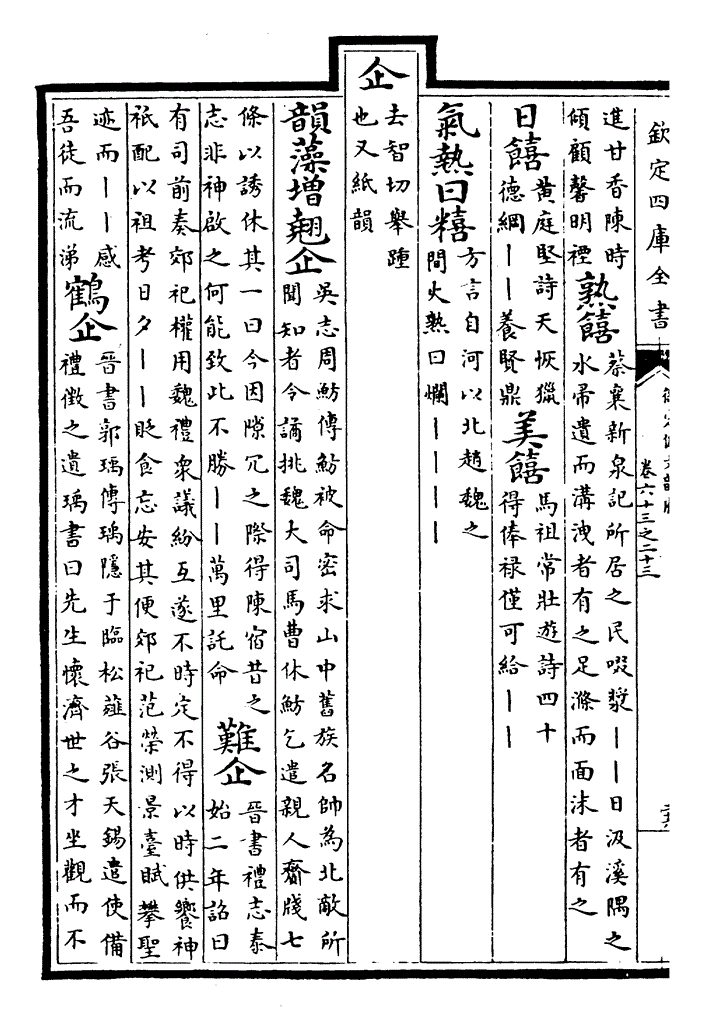 欽定四庫全書
卷六十三之二十三
進甘香陳時
傾顧馨明禋
熟饎
蔡襄新泉記所居之民啜漿丨丨日汲溪隅之
水帚遺而溝洩者有之足滌而面沬者有之
日饎
黄庭堅詩天恢獵
德綱丨丨養賢鼎
美饎
馬祖常壯遊詩四十
得俸禄僅可給丨丨
氣熱曰糦
方言自河以北趙魏之
間火熟曰爛丨丨丨丨
企
去智切舉踵
也又紙韻
韻藻増翹企
吳志周魴傳魴被命密求山中舊族名帥為北敵所
聞知者令譎挑魏大司馬曹休魴乞遣親人齎牋七
條以誘休其一曰今因隙冗之際得陳宿昔之
志非神啟之何能致此不勝丨丨萬里託命
難企
晉書禮志泰
始二年詔曰
有司前奏郊祀權用魏禮衆議紛互遂不時定不得以時供饗神
祇配以祖考日夕丨丨貶食忘安其便郊祀范榮測景臺賦攀聖
迹而丨丨感
吾徒而流涕
鶴企
晉書郭瑀傳瑀隱于臨松薤谷張天錫遣使備
禮徵之遺瑀書曰先生懷濟世之才坐觀而不